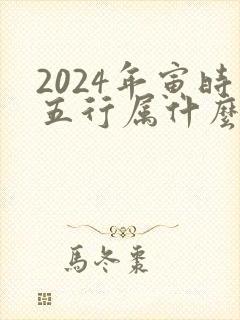 2024年寅時
五行属什麼
馬冬棗